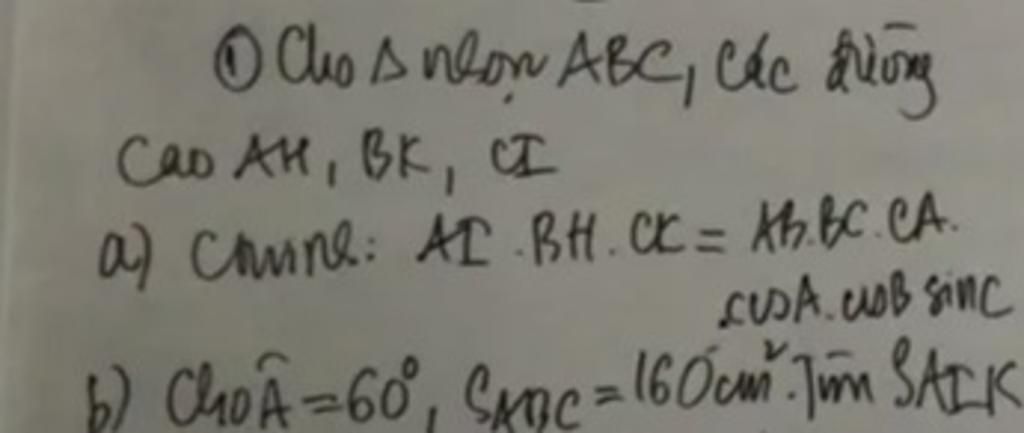 ① Cho Δ nhọn ABC, các đường
cao AH, BK, CI
a) Cminh: AI . BH . CK = AB.BC.CA.
.cosA.cosB sinC
b) Cho Â = 60°, SABC = 160cm². Tìm SAIK